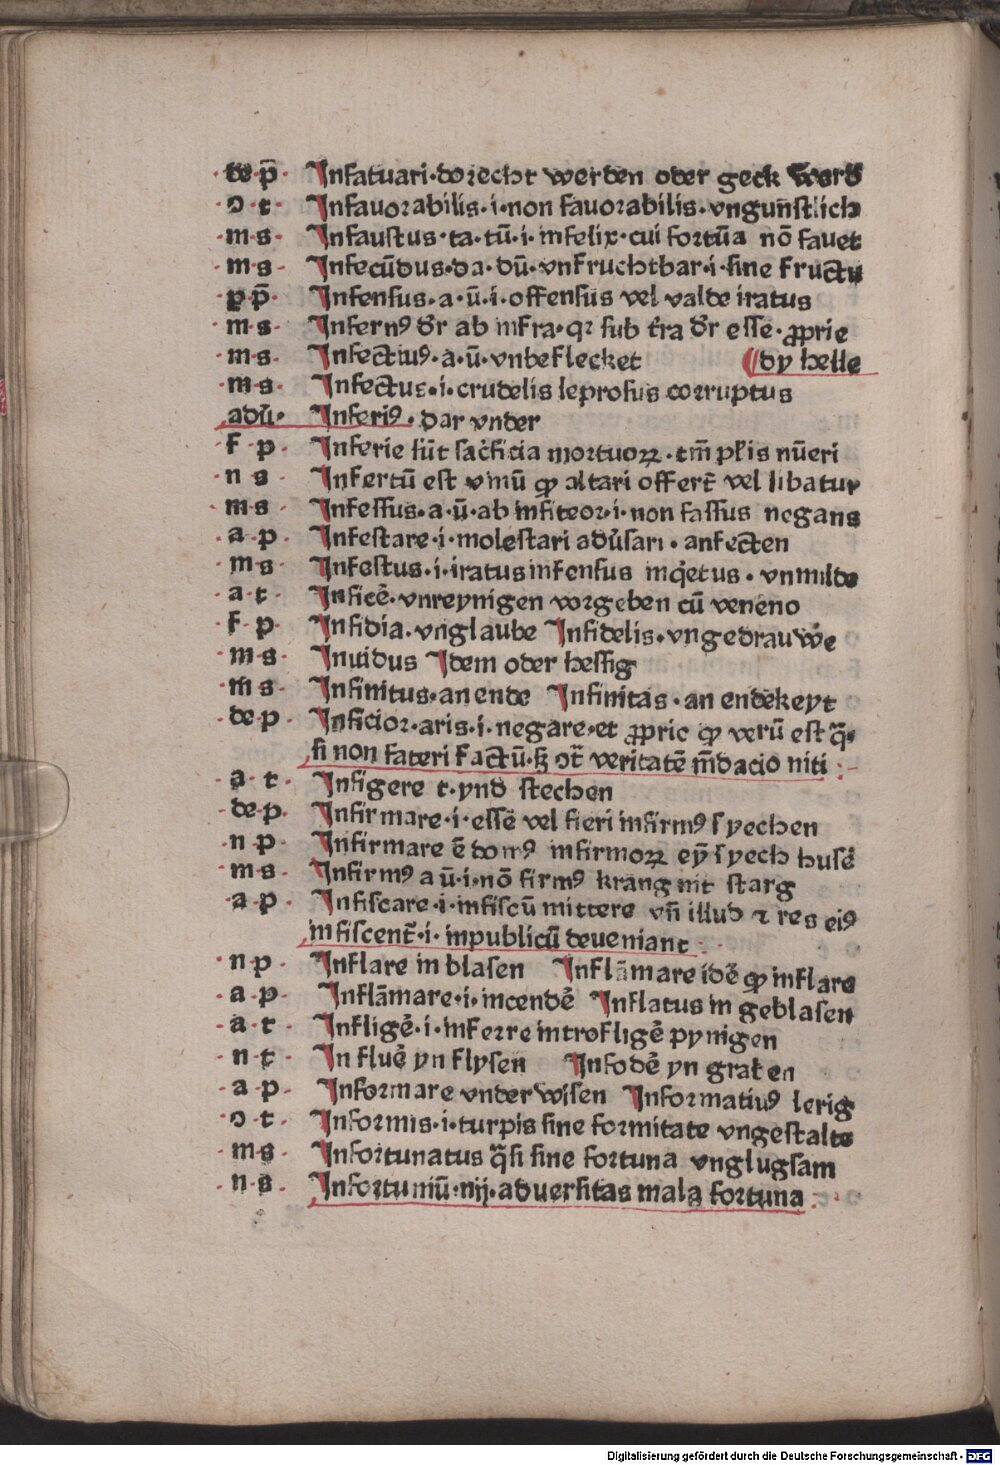 ·de·p̄· Infatuari·dorecht werden oder geck werd̄
·ɔ·t· Infauorabilis·i·non fauorabilis·vngunstlich
·m·s· Infaustus·ta·tū·i·infelix·cui fortūa nō fauet
·m·s· Infecūdus·da·dū·vnfruchtbar·i·sine fructu
·p·p̄· Infensus·a·ū·i·offensus vel valde iratus
·m·s· Infernꝰ dr̄ ab infra·qꝛ sub t̄ra dr̄ esse·ꝓprie
·m·s· Infectiuꝰ·a·ū·vnbeflecket ⸿dy helle
·m·s· Infectus·i·crudelis leprosus corruptus
adū· Inferiꝰ·dar vnder
·f·p· Inferie sūt sac̄ficia mortuoꝝ·tm̄ pl̄is nūeri
·n·s· Infertū est vinū qđ altari offert̄ vel libatur
·m·s· Infessus·a·ū·ab infiteor·i·non fassus negans
·a·p· Infestare·i·molestari adūsari·anfecten
·m·s· Infestus·i·iratus infensus inq̄etus·vnmilde
·a·t· Inficē·vnreynigen vorgeben cū veneno
·f·p· Infidia·vnglaube Infidelis·vngedrauwē
·m·s· Inuidus Idem oder hessig
·m̄·s· Infinitus·an ende Infinitas·an endēkeyt
·de·p· Inficior·aris·i·negare·et ꝓprie qđ verū est q̄·
si non fateri factū·sꝫ ɔt̄ veritatē m̄dacio niti
·a·t· Infigere t·ynd stechen
·de·p· Infirmare·i·essē vel fieri infirmꝰ syechen
·n·p· Infirmare ē domꝰ infirmoꝝ eyn̄ syech husē
·m·s· Infirmꝰ a ū·i·nō firmꝰ krang nit starg
·a·p· Infiscare·i·infiscū mittere vn̄ illud ⁊ res eiꝰ
infiscent̄·i·inpublicū deueniant
·n·p· Inflare in blasen Inflāmare idē qđ inflare
·a·p· Inflāmare·i·incendē Inflatus in geblasen
·a·t· Infligē·i·inferre introfligē pynigen
·n·t· Influē yn flysen Infodē yn graben
·a·p· Informare vnderwisen Informatiuꝰ lerig
·ɔ·t· Informis·i·turpis sine formitate vngestalte
·m·s· Infortunatus q̄si sine fortuna vnglugsam
·n·s· Infortuniū·nij·aduersitas mala fortuna
Digitalisierung gefördert durch die Deutsche Forschungsgemeinschaft - DFG